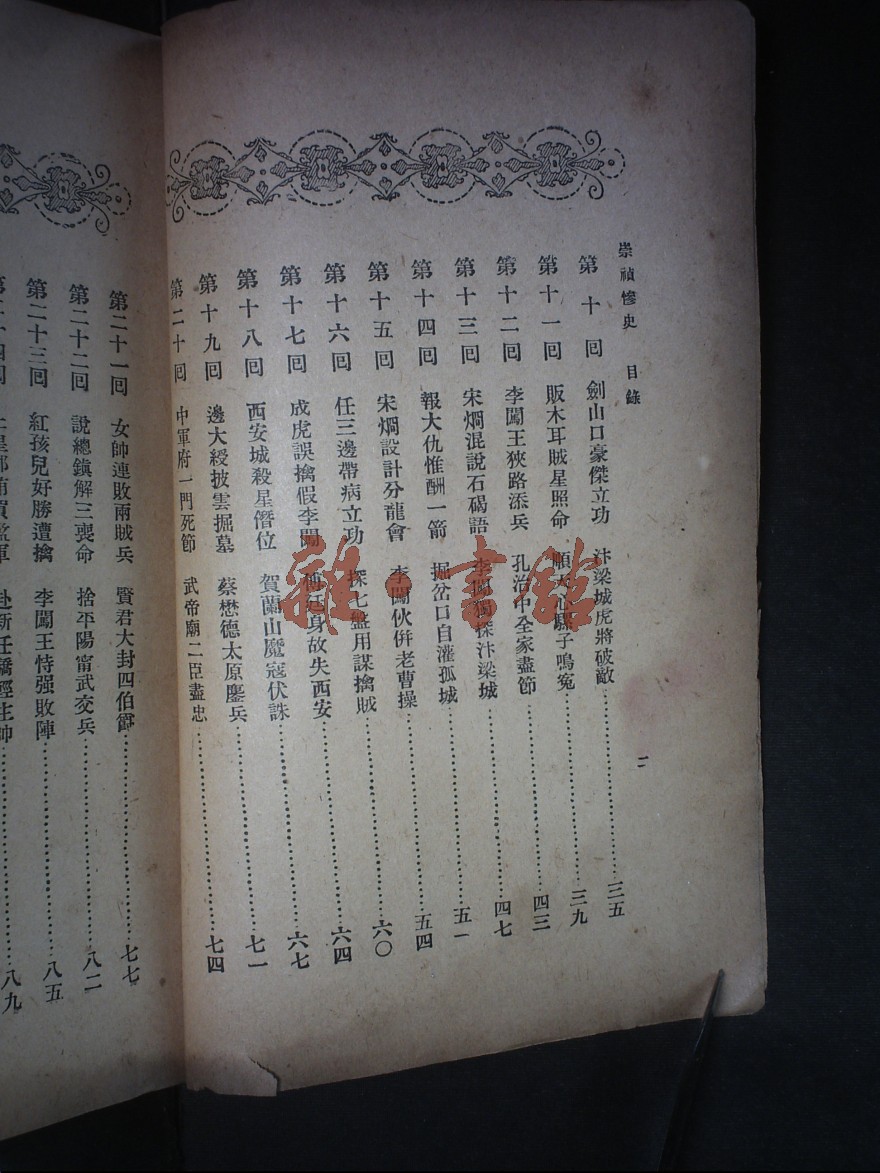 崇禎慘史 目錄
二
第十回 劍山口豪傑立功 汴梁城虎將破敵 三五
第十一回 販木耳賊星照命 順天心騾子鳴寃 三九
第十二回 李闖王狹路添兵 孔治中全家盡節 四三
第十三回 宋炯混說石碣語 李闖獨探汴梁城 四七
第十四回 報大仇惟酬一箭 掘岔口自灌孤城 五一
第十五回 宋炯設計分龍會 李闖伙併老曹操 五四
第十六回 任三邊帶病立功 探七盤用謀擒賊 六〇
第十七回 成虎誤擒假李闖 傅廷身故失西安 六四
第十八回 西安城殺星僭位 賀蘭山魔寇伏誅 六七
第十九回 邊大綬披雲掘墓 蔡懋德太原鏖兵 七一
第二十回 中軍府一門死節 武帝廟二臣盡忠 七四
第二十一回 女帥連敗兩賊兵 賢君大封四伯爵 七七
第二十二回 說總鎮解三喪命 捨平陽甯武交兵 八二
第二十三回 紅孩兒好勝遭擒 李闖王恃强敗陣 八五
八九
雜·書館